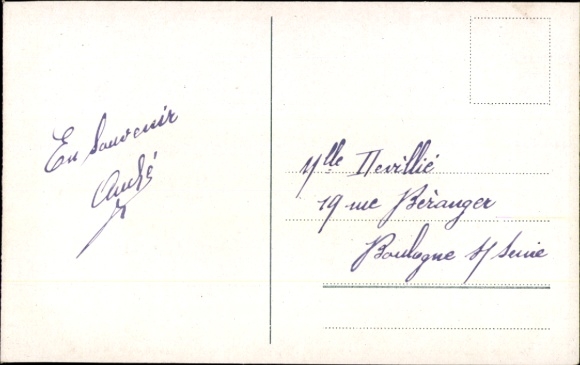 En souvenir
André
Mlle Devillié
19 rue Béranger
Boulogne s/ Seine